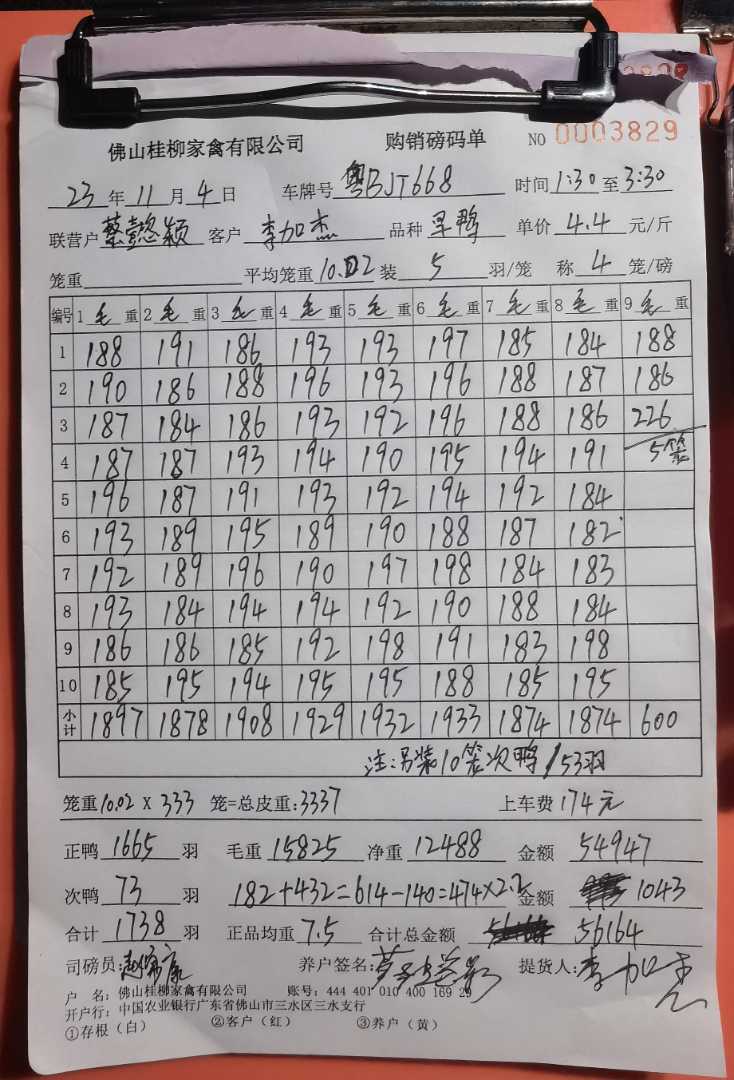 佛山桂柳家禽有限公司 购销磅码单 NO 0003829
23 年 11 月 4 日 车牌号 粤BJT668 时间 1:30 至 3:30
联营户 蔡懿颖 客户 李加杰 品种 旱鸭 单价 4.4 元/斤
笼重 平均笼重 10.02 装 5 羽/笼 称 4 笼/磅
编号 1 毛 重 2 毛 重 3 毛 重 4 毛 重 5 毛 重 6 毛 重 7 毛 重 8 毛 重 9 毛 重
1 188 191 186 193 193 197 185 184 188
2 190 186 188 196 193 196 188 187 186
3 187 184 186 193 192 196 188 186 226
4 187 187 193 194 190 195 194 191 5笼
5 196 187 191 193 192 194 192 184
6 193 189 195 189 190 188 187 182
7 192 189 196 190 197 198 184 183
8 193 184 194 194 192 190 188 184
9 186 186 185 192 198 191 183 198
10 185 195 194 195 195 188 185 195
小计 1897 1878 1908 1929 1932 1933 1874 1874 600
注:另装10笼次鸭/53羽
笼重 10.02 X 333 笼=总皮重:3337 上车费 174元
正鸭 1665 羽 毛重 15825 净重 12488 金额 54947
次鸭 73 羽 182+432=614-140=474×2.2 金额 1043
合计 1738 羽 正品均重 7.5 合计总金额 56164
司磅员: 养户签名: 提货人: 李加杰
户 名: 佛山桂柳家禽有限公司 账号: 444 401 010 400 169 29
开户行: 中国农业银行广东省佛山市三水区三水支行
①存根（白） ②客户（红） ③养户（黄）